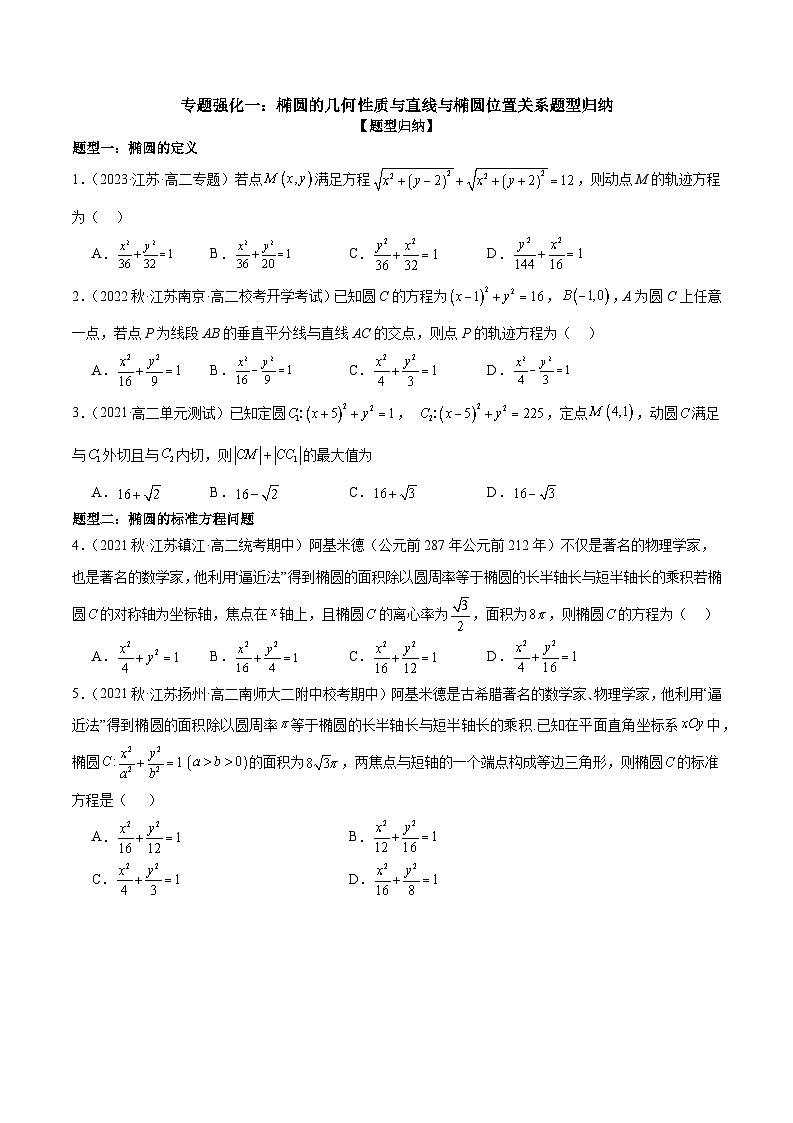 专题强化一：椭圆的几何性质与直线与椭圆位置关系题型归纳
【题型归纳】
题型一：椭圆的定义
1.（2023·江苏·高二专题）若点M(x,y)满足方程√(x²+(y−2)²)+√(x²+(y+2)²)=12，则动点M的轨迹方程
为（ ）
A．x²/36+y²/32=1 B．x²/36+y²/20=1 C．y²/36+x²/32=1 D．y²/144+x²/16=1
2.（2022秋·江苏南京·高二校考开学考试）已知圆C的方程为(x−1)²+y²=16，B(−1,0)，A为圆C上任意
一点，若点P为线段AB的垂直平分线与直线AC的交点，则点P的轨迹方程为（ ）
A．x²/16+y²/9=1 B．x²/16−y²/9=1 C．x²/4+y²/3=1 D．x²/4−y²/3=1
3.（2021·高二单元测试）已知定圆C₁:(x+5)²+y²=1， C₂:(x−5)²+y²=225，定点M(4,1)，动圆C满足
与C₁外切且与C₂内切，则|CM|+|CC₁|的最大值为
A．16+√2 B．16−√2 C．16+√3 D．16−√3
题型二：椭圆的标准方程问题
4.（2021秋·江苏镇江·高二统考期中）阿基米德（公元前287年公元前212年）不仅是著名的物理学家，
也是著名的数学家，他利用“逼近法”得到椭圆的面积除以圆周率等于椭圆的长半轴长与短半轴长的乘积若椭
圆C的对称轴为坐标轴，焦点在x轴上，且椭圆C的离心率为√3/2，面积为8π，则椭圆C的方程为（ ）
A．x²/4+y²=1 B．x²/16+y²/4=1 C．x²/16+y²/12=1 D．x²/4+y²/16=1
5.（2021秋·江苏扬州·高二南师大二附中校考期中）阿基米德是古希腊著名的数学家、物理学家，他利用“逼
近法”得到椭圆的面积除以圆周率π等于椭圆的长半轴长与短半轴长的乘积.已知在平面直角坐标系xOy中，
椭圆C:x²/a²+y²/b²=1(a>b>0)的面积为8√3π，两焦点与短轴的一个端点构成等边三角形，则椭圆C的标准
方程是（ ）
A．x²/16+y²/12=1 B．x²/12+y²/16=1
C．x²/4+y²/3=1 D．x²/16+y²/8=1